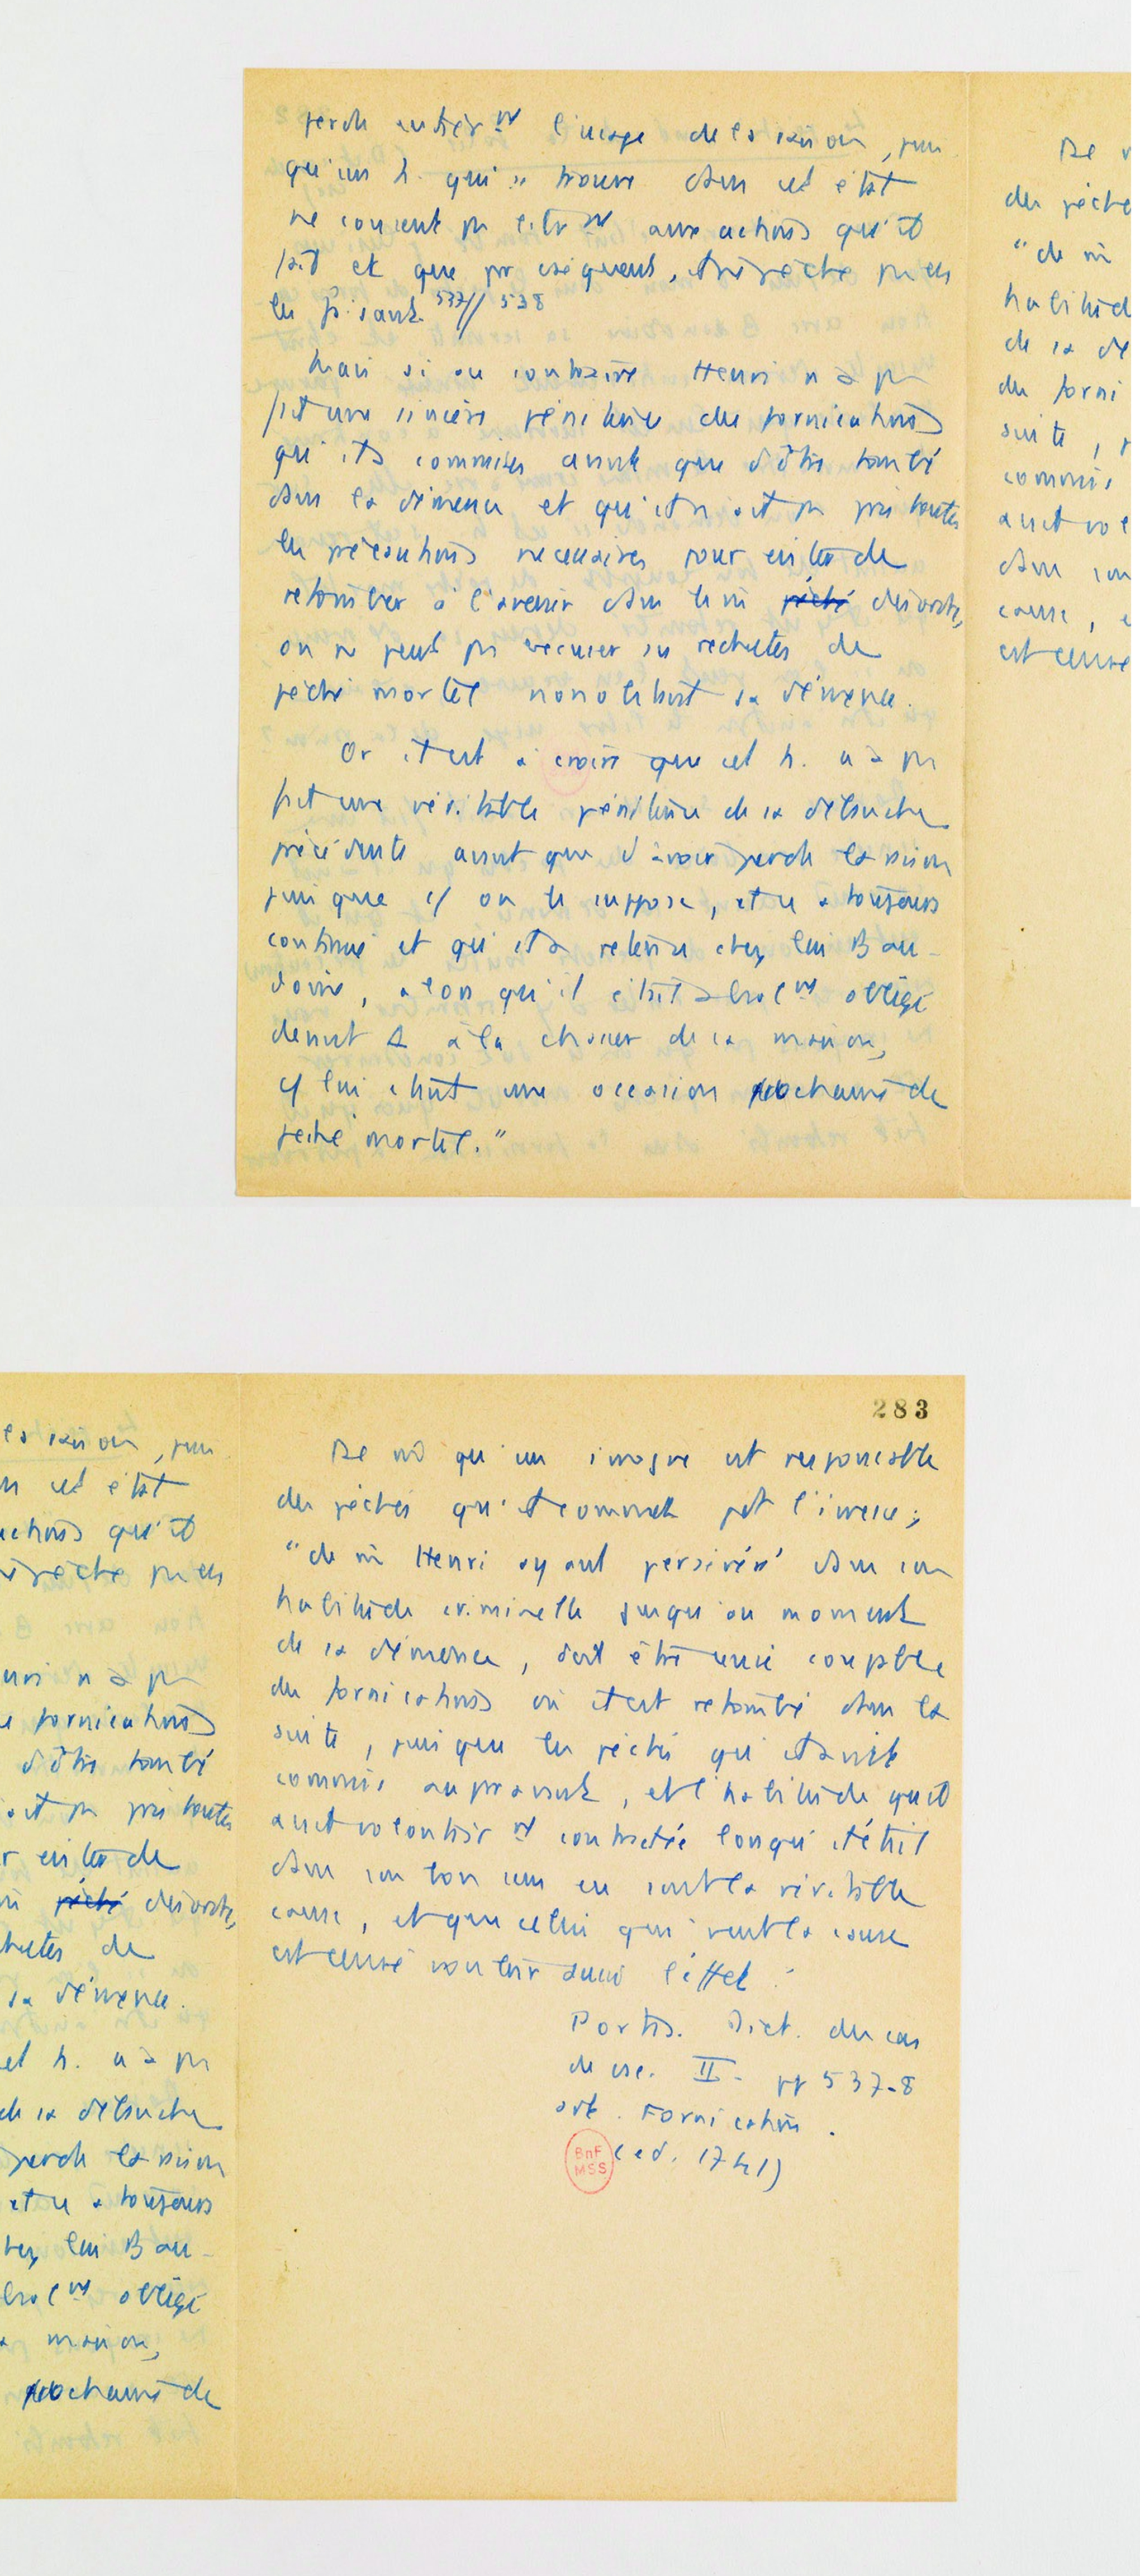 perdu entièrnt l'usage de la raison, puis
qu'un h. qui se trouve dans cet état
ne consent pas librnt aux actions qu'il
fait et que par cséquent, il ne pèche pas en
les faisant 537// 538
Mais si au contraire Henri n'a pas
fait une sincère pénitence des fornications
qu'il a commises avant que d'être tombé
dans la démence et qu'il n'ait pas pris toutes
les précautions nécessaires pour éviter de
retomber à l'avenir dans le m̂ péché désordre,
on ne peut pas excuser ses rechutes de
péché mortel nonobstant sa démence.
Or il est à croire que cet h. n'a pas
fait une véritable pénitence de sa débauche
précédente avant que d'avoir perdu la raison
puisque c/ on le suppose, il y a toujours
continué et qu'il a retenu chez lui Bau-
doine, alors qu'il était absolnt obligé
devant Δ à la chasser de sa maison,
c/ lui étant une occasion prochaine de
péché mortel."
283
De m̂ qu'un ivrogne est responsable
des péchés qu'il commet pdt l'ivresse ;
"de m̂ Henri ayant persévéré dans son
habitude criminelle jusqu'au moment
de sa démence, doit être censé coupable
des fornications où il est retombé dans la
suite, puisque les péchés qu'il avait
commis auparavant, et l'habitude qu'il
avait volontairnt contractée lorsqu'il était
dans son bon sens en sont la véritable
cause, et que celui qui veut la cause
est censé vouloir aussi l'effet."
Pontas. Dict. des cas
de csc. II. pp 537-8
art. Fornication.
(ed. 1741)
BnF
MSS